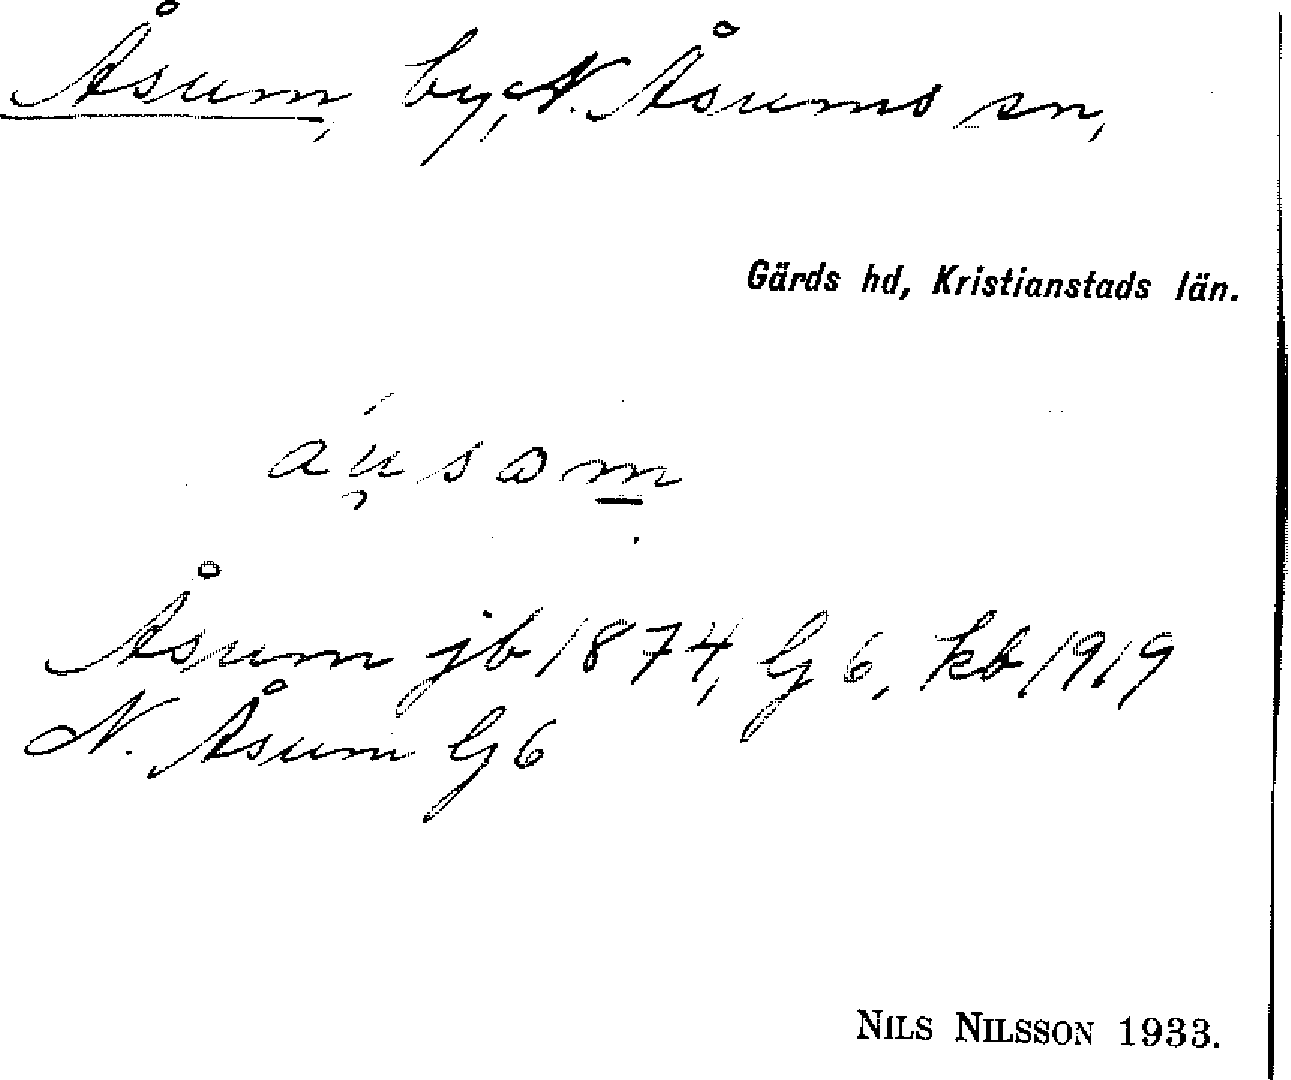 Åsum, by, N. Åsums sn,
Gärds hd, Kristianstads län.
Åsum jb 1874, G 6, kb 1919
N. Åsum G 6
NILS NILSSON 1933.